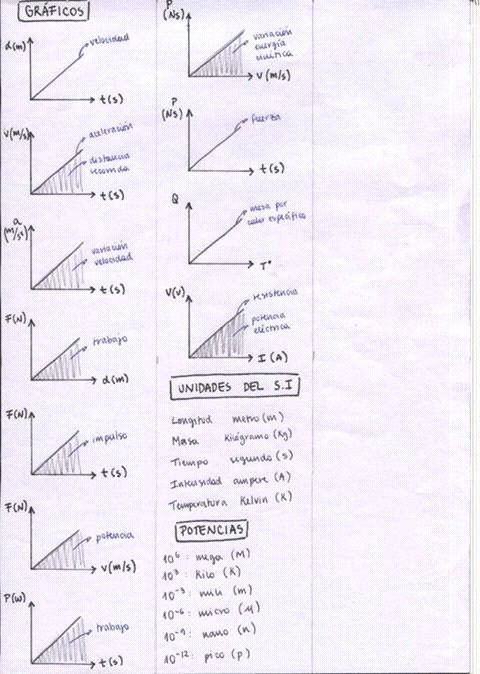 GRÁFICOS
d(m)
velocidad
t(s)
V(m/s)
aceleración
distancia
recorrida
t(s)
a
(m/s²)
variación
velocidad
t(s)
F(N)
trabajo
d(m)
F(N)
impulso
t(s)
F(N)
potencia
V(m/s)
P(W)
trabajo
t(s)
P
(Ns)
variación
energía
cinética
V(m/s)
P
(Ns)
fuerza
t(s)
Q
masa por
calor específico
T°
V(V)
resistencia
potencia
eléctrica
I(A)
UNIDADES DEL S.I
Longitud metro(m)
Masa Kilógramo (Kg)
Tiempo segundo (s)
Intensidad ampere (A)
Temperatura Kelvin (K)
POTENCIAS
10⁶: mega (M)
10³: Kilo (K)
10⁻³: mili (m)
10⁻⁶: micro (μ)
10⁻⁹: nano (n)
10⁻¹²: pico (p)